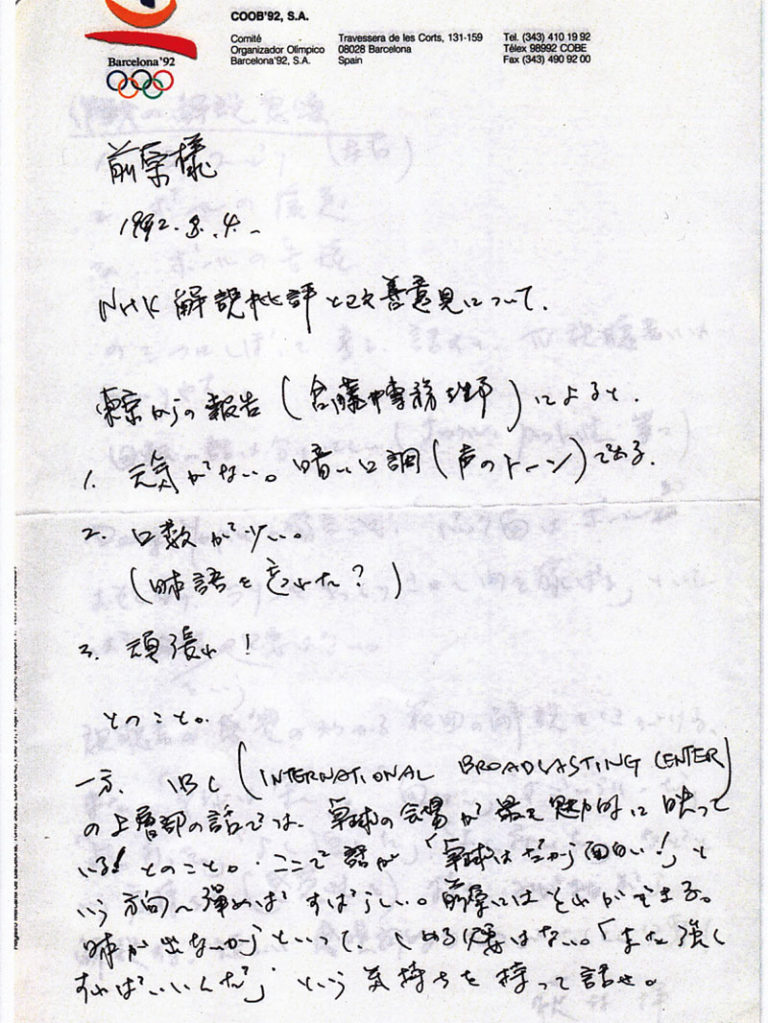 COOB'92, S.A.
Comité
Organizador Olímpico
Barcelona'92, S.A.
Travessera de les Corts, 131-159
08028 Barcelona
Spain
Tel. (343) 410 19 92
Télex 98992 COBE
Fax (343) 490 92 00
Barcelona'92
前原様
1992.8.4.
NHK解説批評と改善意見について.
東京からの報告(斉藤専務理事)によると.
1. 元気がない。暗い口調(声のトーン)である.
2. 口数が少い。
(日本語を忘れた?)
3. 頑張れ!
とのこと。
一方. IBC (INTERNATIONAL BROADCASTING CENTER)
の上層部の話では、卓球の会場が最も魅力的に映って
いる!とのこと。ここで話が「卓球はだから面白い!」と
いう方向へ弾めばすばらしい。前原にはそれができる。
が出ないからといって、 る はない。「また強く
すればいいんだ」という気持ちを持って話せ。